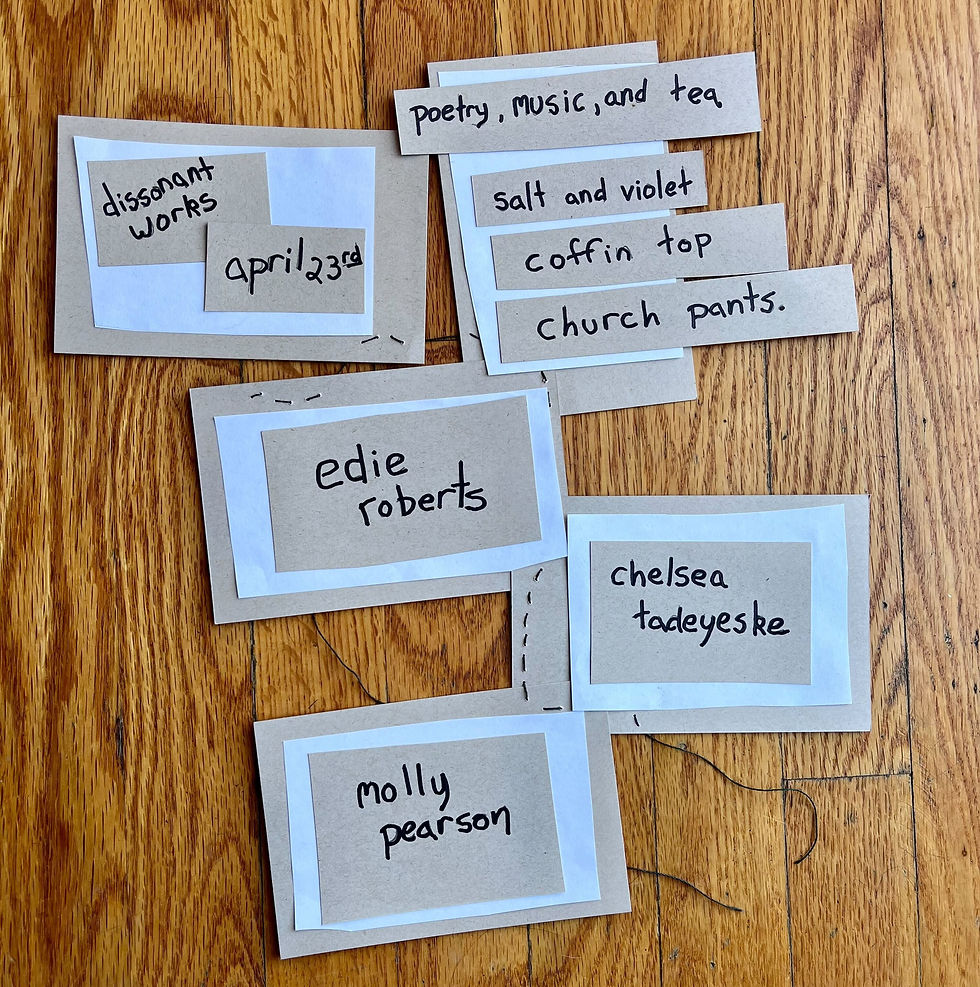 dissonant
works
april 23rd
poetry, music, and tea
salt and violet
coffin top
church pants.
edie
roberts
chelsea
tadeyeske
molly
pearson